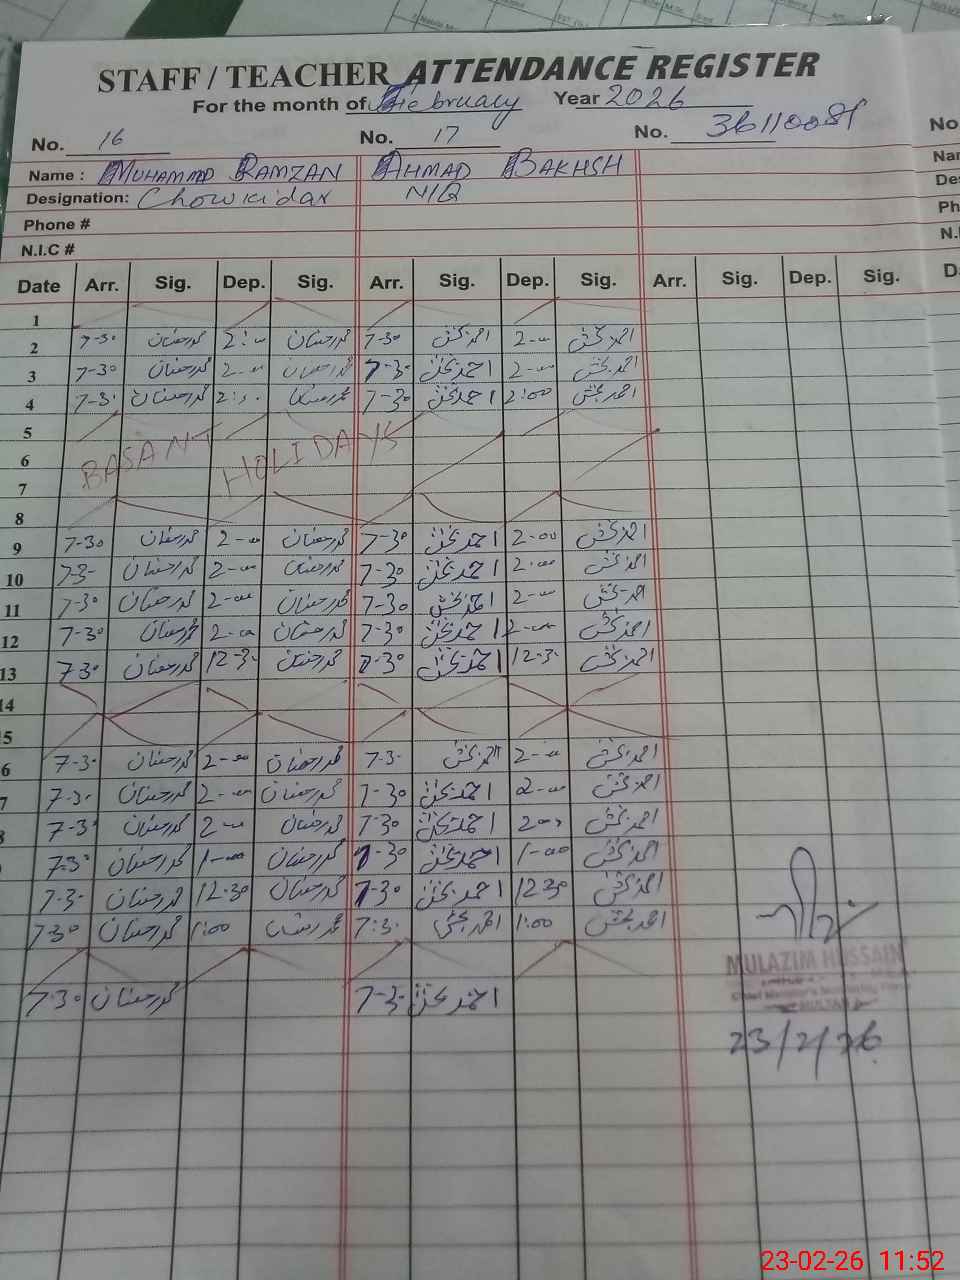 STAFF / TEACHER ATTENDANCE REGISTER
For the month of February Year 2026
No. 16 No. 17 No. 36110081 No
Name : MUHAMMAD RAMZAN AHMAD BAKHSH
Designation: Chowkidar N/Q
Phone #
N.I.C #
Date Arr. Sig. Dep. Sig. Arr. Sig. Dep. Sig. Arr. Sig. Dep. Sig.
1
2 7-30 محمد رمضان 2:00 محمد رمضان 7-30 احمد بخش 2-00 احمد بخش
3 7-30 محمد رمضان 2-00 محمد رمضان 7-30 احمد بخش 2-00 احمد بخش
4 7-30 محمد رمضان 2:00 محمد رمضان 7-30 احمد بخش 2:00 احمد بخش
5
6 BASANT HOLIDAYS
7
8
9 7-30 محمد رمضان 2-00 محمد رمضان 7-30 احمد بخش 2-00 احمد بخش
10 7-30 محمد رمضان 2-00 محمد رمضان 7-30 احمد بخش 2-00 احمد بخش
11 7-30 محمد رمضان 2-00 محمد رمضان 7-30 احمد بخش 2-00 احمد بخش
12 7-30 محمد رمضان 2-00 محمد رمضان 7-30 احمد بخش 2-00 احمد بخش
13 7-30 محمد رمضان 12-30 محمد رمضان 7-30 احمد بخش 12-30 احمد بخش
14
15
6 7-30 محمد رمضان 2-00 محمد رمضان 7-30 احمد بخش 2-00 احمد بخش
7 7-30 محمد رمضان 2-00 محمد رمضان 7-30 احمد بخش 2-00 احمد بخش
8 7-30 محمد رمضان 2-00 محمد رمضان 7-30 احمد بخش 200 احمد بخش
7-30 محمد رمضان 1-00 محمد رمضان 7-30 احمد بخش 1-00 احمد بخش
7-30 محمد رمضان 12-30 محمد رمضان 7-30 احمد بخش 12 30 احمد بخش
7-30 محمد رمضان 1:00 محمد رمضان 7:30 احمد بخش 1:00 احمد بخش
7-30 محمد رمضان 7-30 احمد بخش
MULAZIM HUSSAIN
MULTAN
23/2/26
23-02-26 11:52